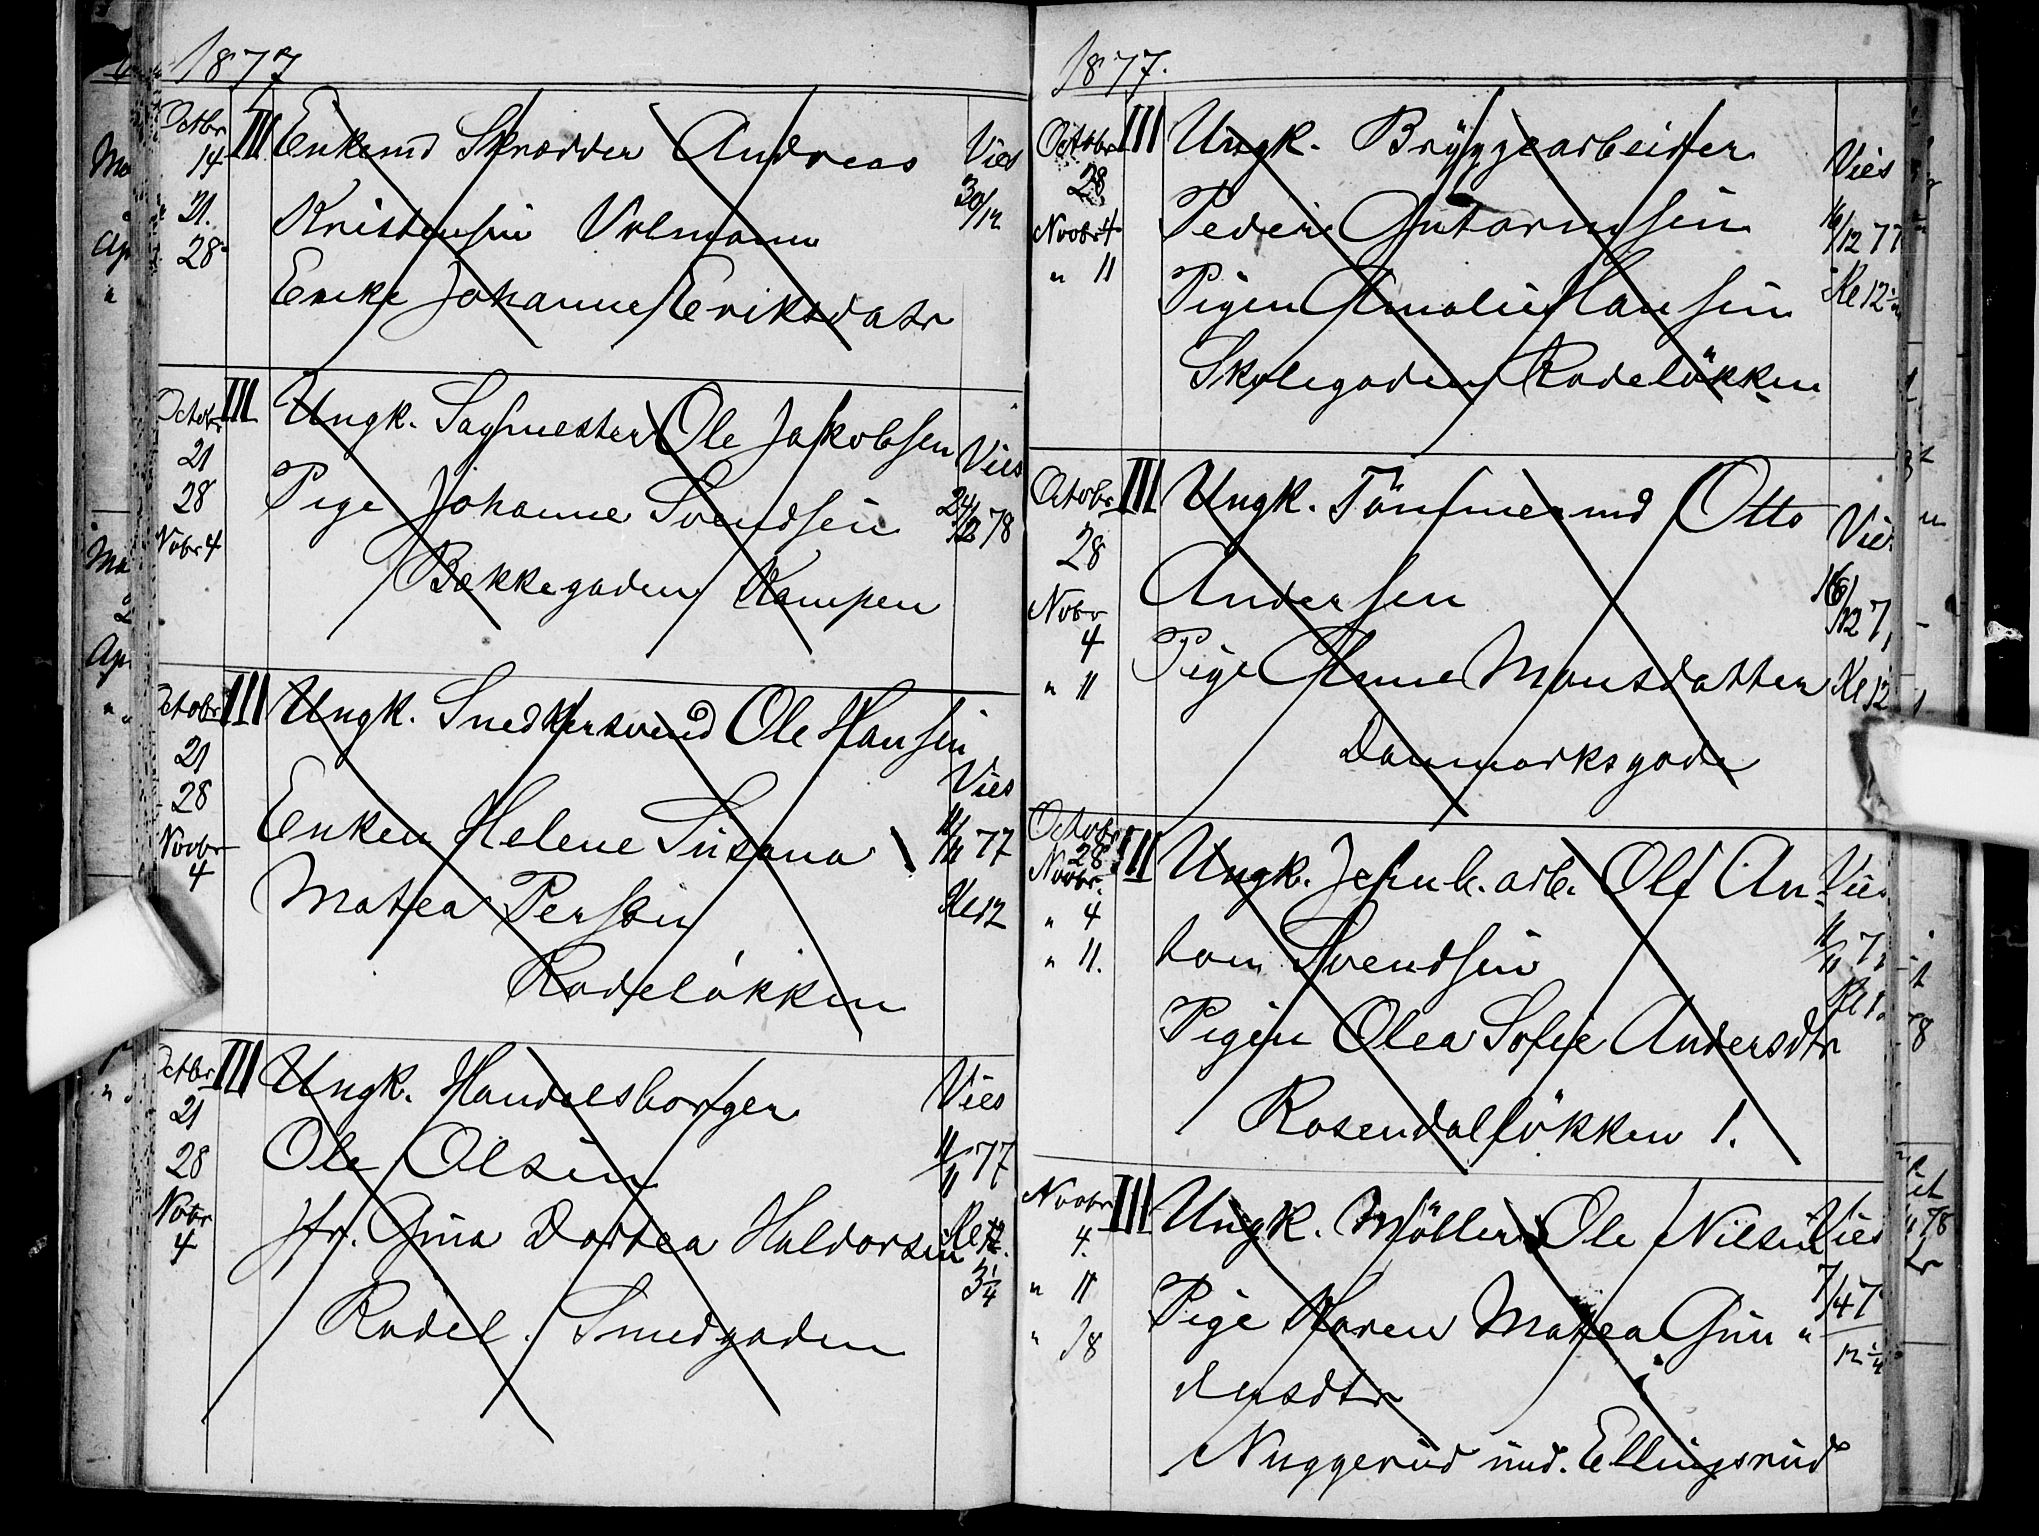 1877
Octbr III Enkemd Skrædder Andreas Vies
14 30/12
21. Kristensen Volmann
28 Enke Johanne Eriksdatr
Octobr III Ungk. Sagmester Ole Jakobsen Vies
21 Pige Johanne Svendsen
28 78
Nobr 4 Bækkegaden Kampen
Octobr III Ungk. Snedkersvend Ole Hansen
21 Vies
28 Enken Helene Susana 11/11 77
Novbr Matea Persen Kl 12
4
Rodeløkken
Octbr III Ungk. Handelsborger Vies
21 Ole Olsen 11/11 77
28 Jfr. Gina Dortea Haldorsen Kl 12.
Novbr 3 1/4
4 Rodel. Smedgaden
1877.
Octobr III Ungk. Bryggearbeider Vies
28 Peder Gutormsen 16/12 77
Novbr 4 Pigen Amalie Hansen Kl 12 1/2
" 11 Skolegaden Rodeløkken
Octobr III Ungk. Tømmermd Otto Vies
28 Andersen 16/12 7
Nobr
4 Pige Anne Monsdatter Kl 12
" 11
Danmarksgade
Octobr III Ungk. Jernb. arb. Ole An- Vies
28
Novbr.
" 4 ton Svendsen 11/11 7
" 11. Kl 1
Pigen Olea Sofie Andersdtr
Rosendalløkken 1.
Novbr III Ungk. Møller Ole Nilsen Vies
4. 7/4 7
" 11 Pige Karen Matea Gun" 12 1/4
" 18 dersdtr
Nuggerud und. Ellingsrud